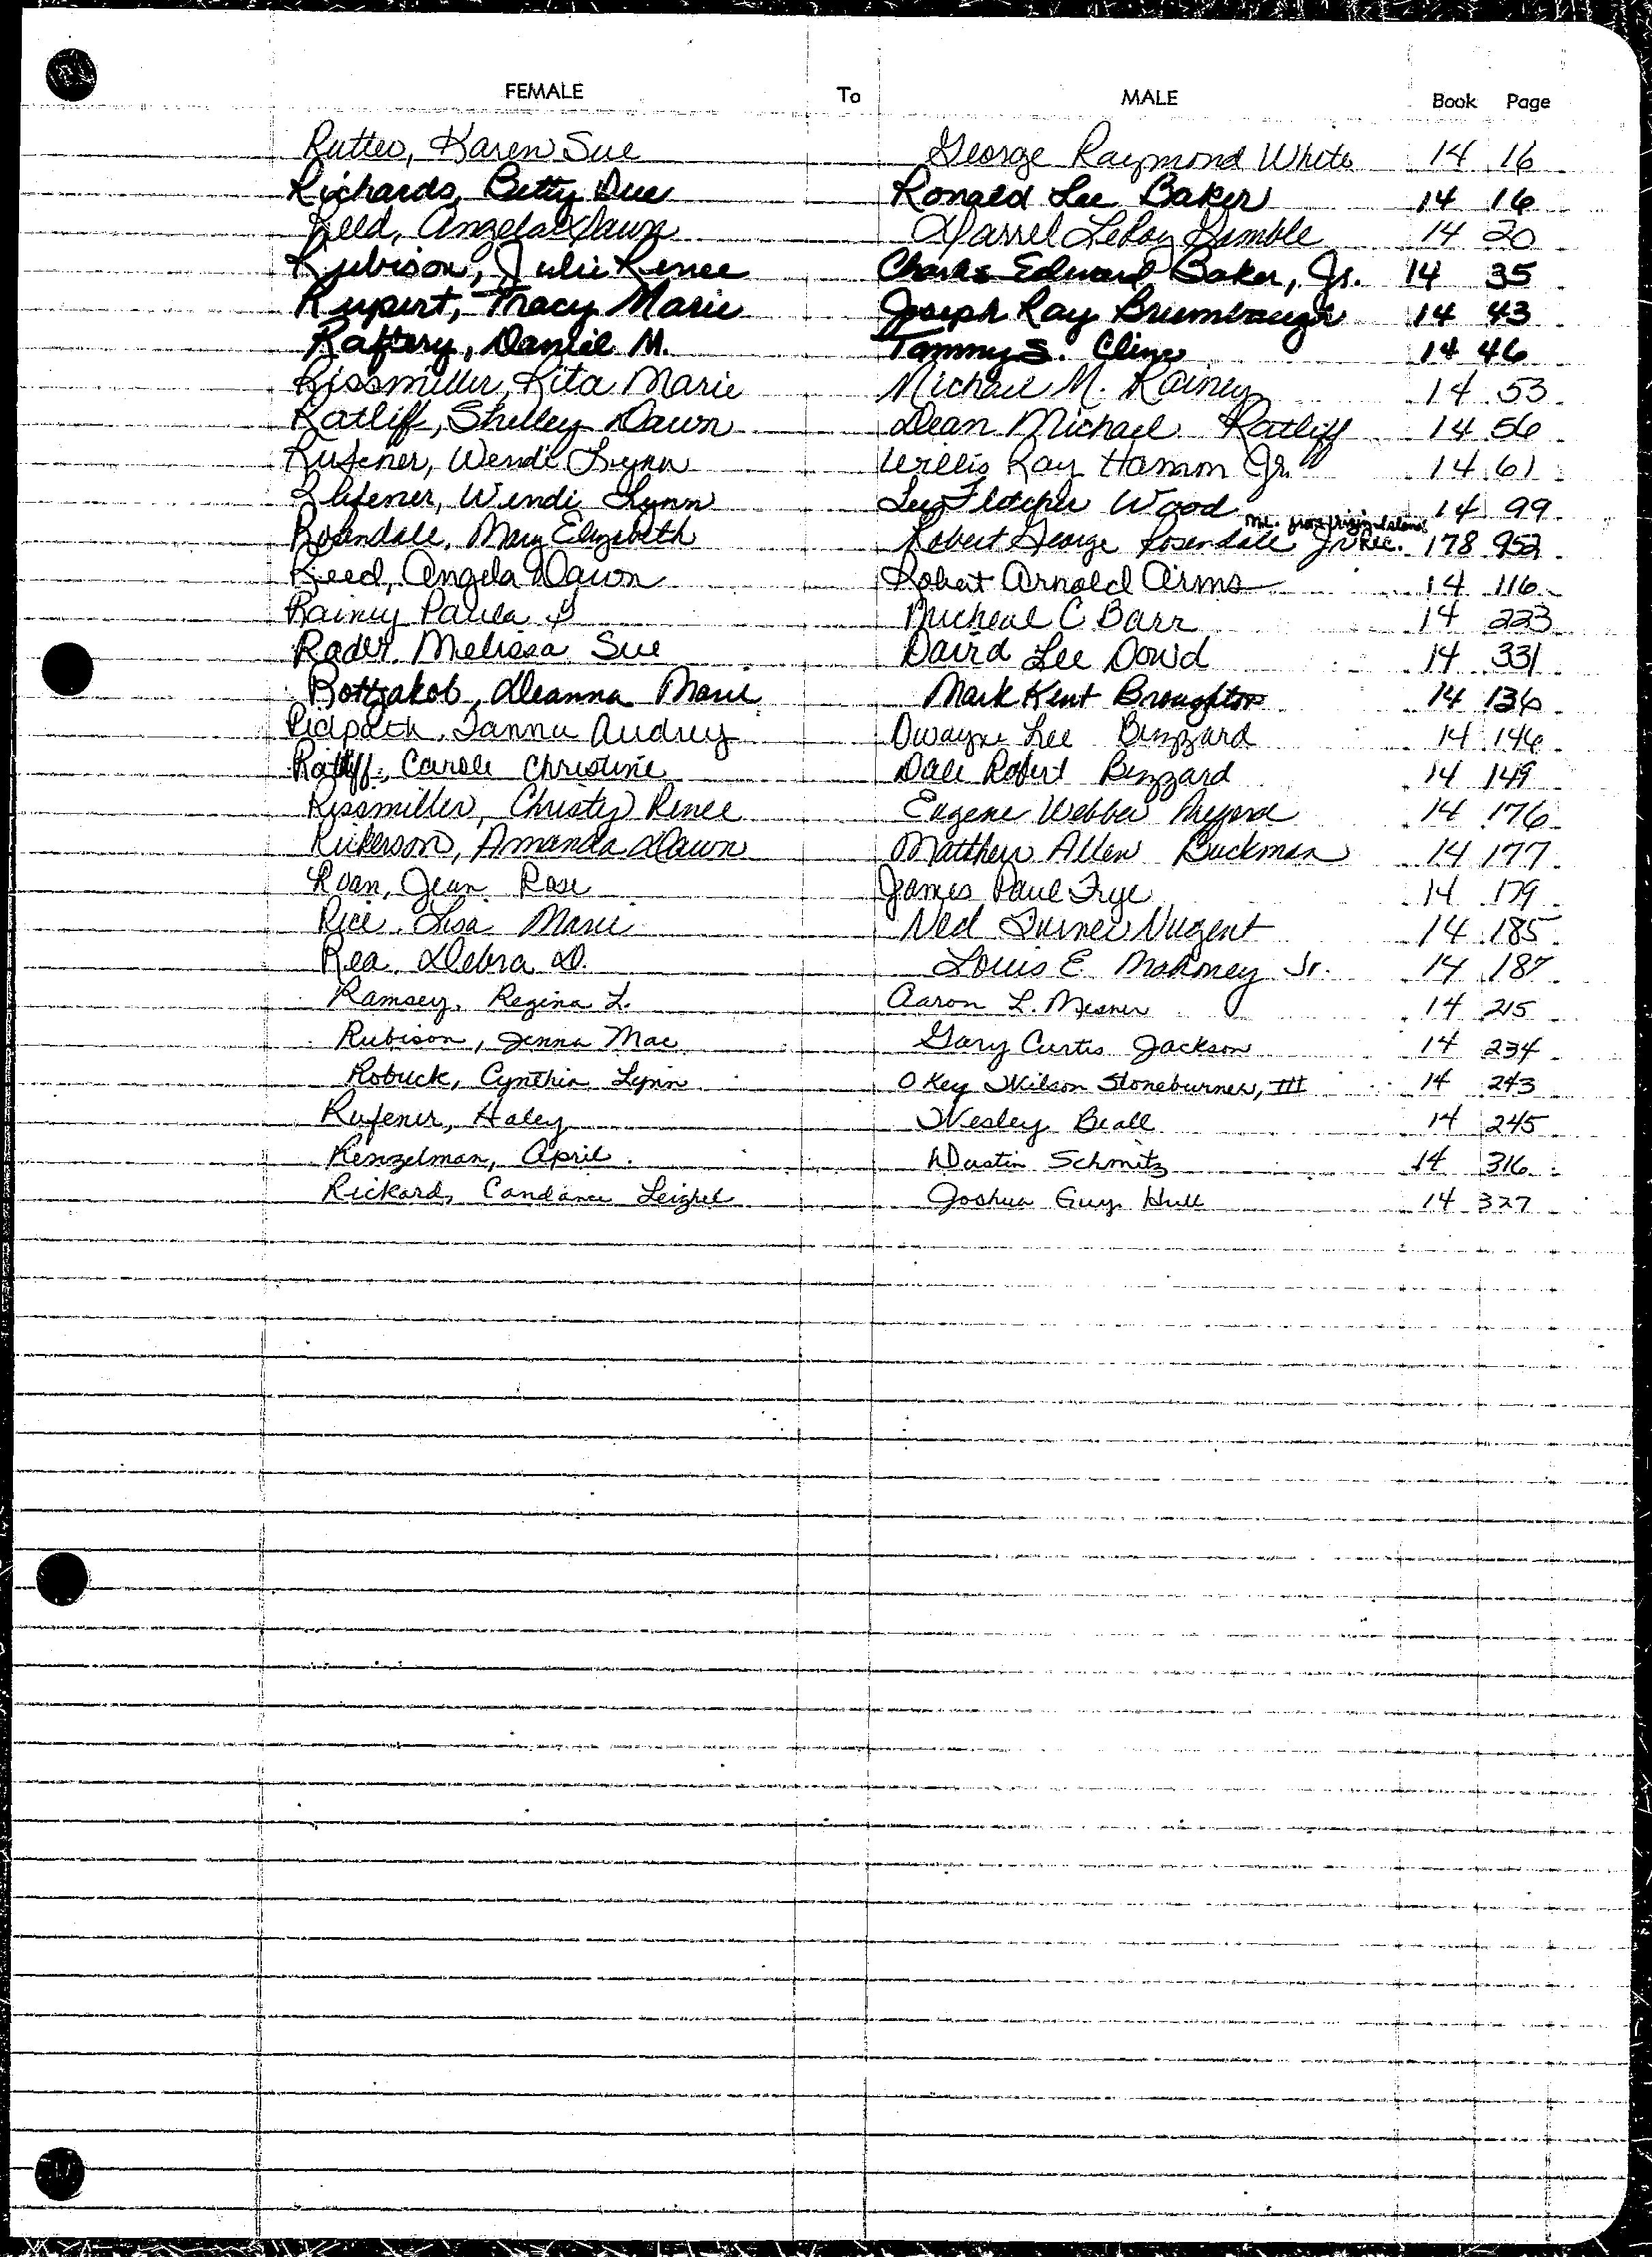 FEMALE To MALE Book Page
Rutter, Karen Sue George Raymond White 14 16
Richards, Betty Sue Ronald Lee Baker 14 16
Reed, Angela Dawn Darrel LeRoy Gamble 14 20
Rubison, Julie Renee Charles Edward Baker, Jr. 14 35
Rupert, Tracy Marie Joseph Ray Brumbaugh 14 43
Raftery, Daniel M. Tammy S. Cline 14 46
Rissmiller, Rita Marie Michael M. Rainey 14 53
Ratliff, Shelley Dawn Dean Michael Ratliff 14 56
Rufener, Wendi Lynn Willis Ray Hamm Jr. 14 61
Rufener, Wendi Lynn Lee Fletcher Wood 14 99
Rosendale, Mary Elizabeth Robert George Rosendale Jr Rec. 178 952
Reed, Angela Dawn Robert Arnold Arms 14 116
Rainey Paula Micheal C Barr 14 223
Rader Melissa Sue David Lee Dowd 14 331
Bottjakob, Deanna Marie Mark Kent Broughton 14 136
Ridpath, Audrey Dwayne Lee Buzzard 14 146
Ratliff, Carole Christine Dale Robert Buzzard 14 149
Rissmiller, Christy Renee Eugene Webber 14 176
Rickerson, Amanda Dawn Matthew Allen Buckman 14 177
Roan, Jean Rose James Paul Frye 14 179
Rice Lisa Marie Ned Turner Nugent 14 185
Rea Debra D. Louis E. Mahoney Jr. 14 187
Ramsey, Regina L. Aaron L. Mesner 14 215
Rubison, Jenna Mae Gary Curtis Jackson 14 234
Robuck, Cynthia Lynn O Key Wilson Stoneburner, III 14 243
Rufener, Haley Wesley Beall 14 245
Renzelman, April Dustin Schmitz 14 316
Rickard, Candance Leighel Joshua Guy Hull 14 327